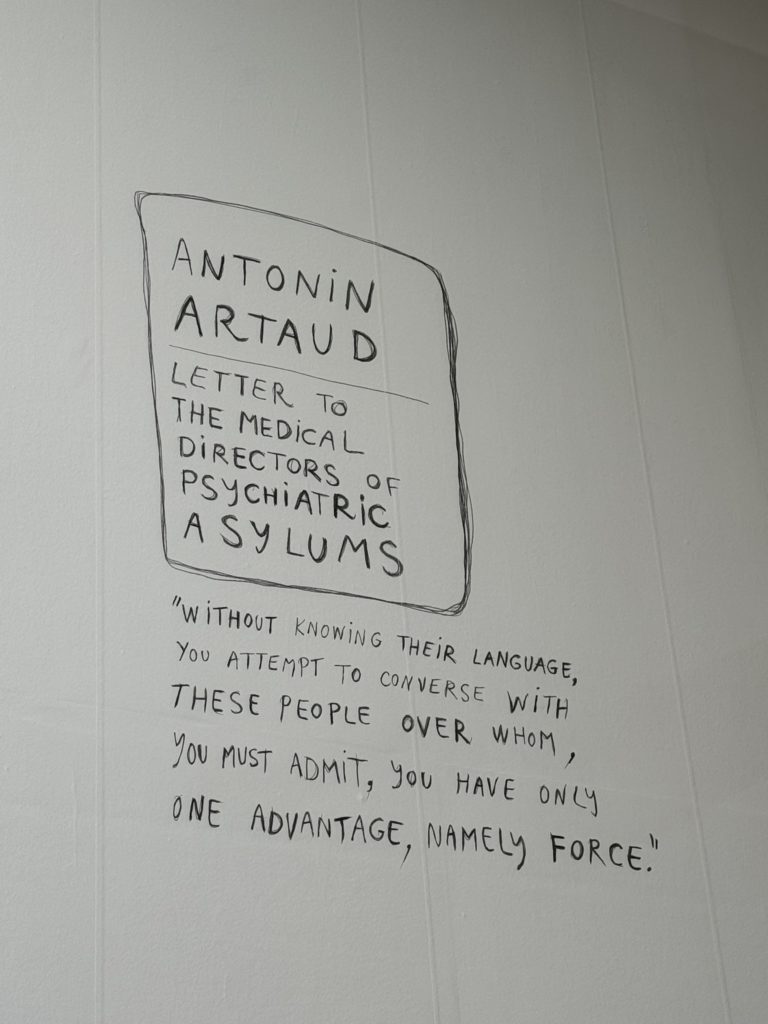 ANTONiN
ARTAUD
LETTER TO
THE MEDiCAL
DiRECTORS OF
PSYCHiATRiC
ASYLUMS
"WiTHOUT KNOWiNG THEiR LANGUAGE,
YOU ATTEMPT TO CONVERSE WiTH
THESE PEOPLE OVER WHOM,
YOU MUST ADMiT, YOU HAVE ONLY
ONE ADVANTAGE, NAMELY FORCE."